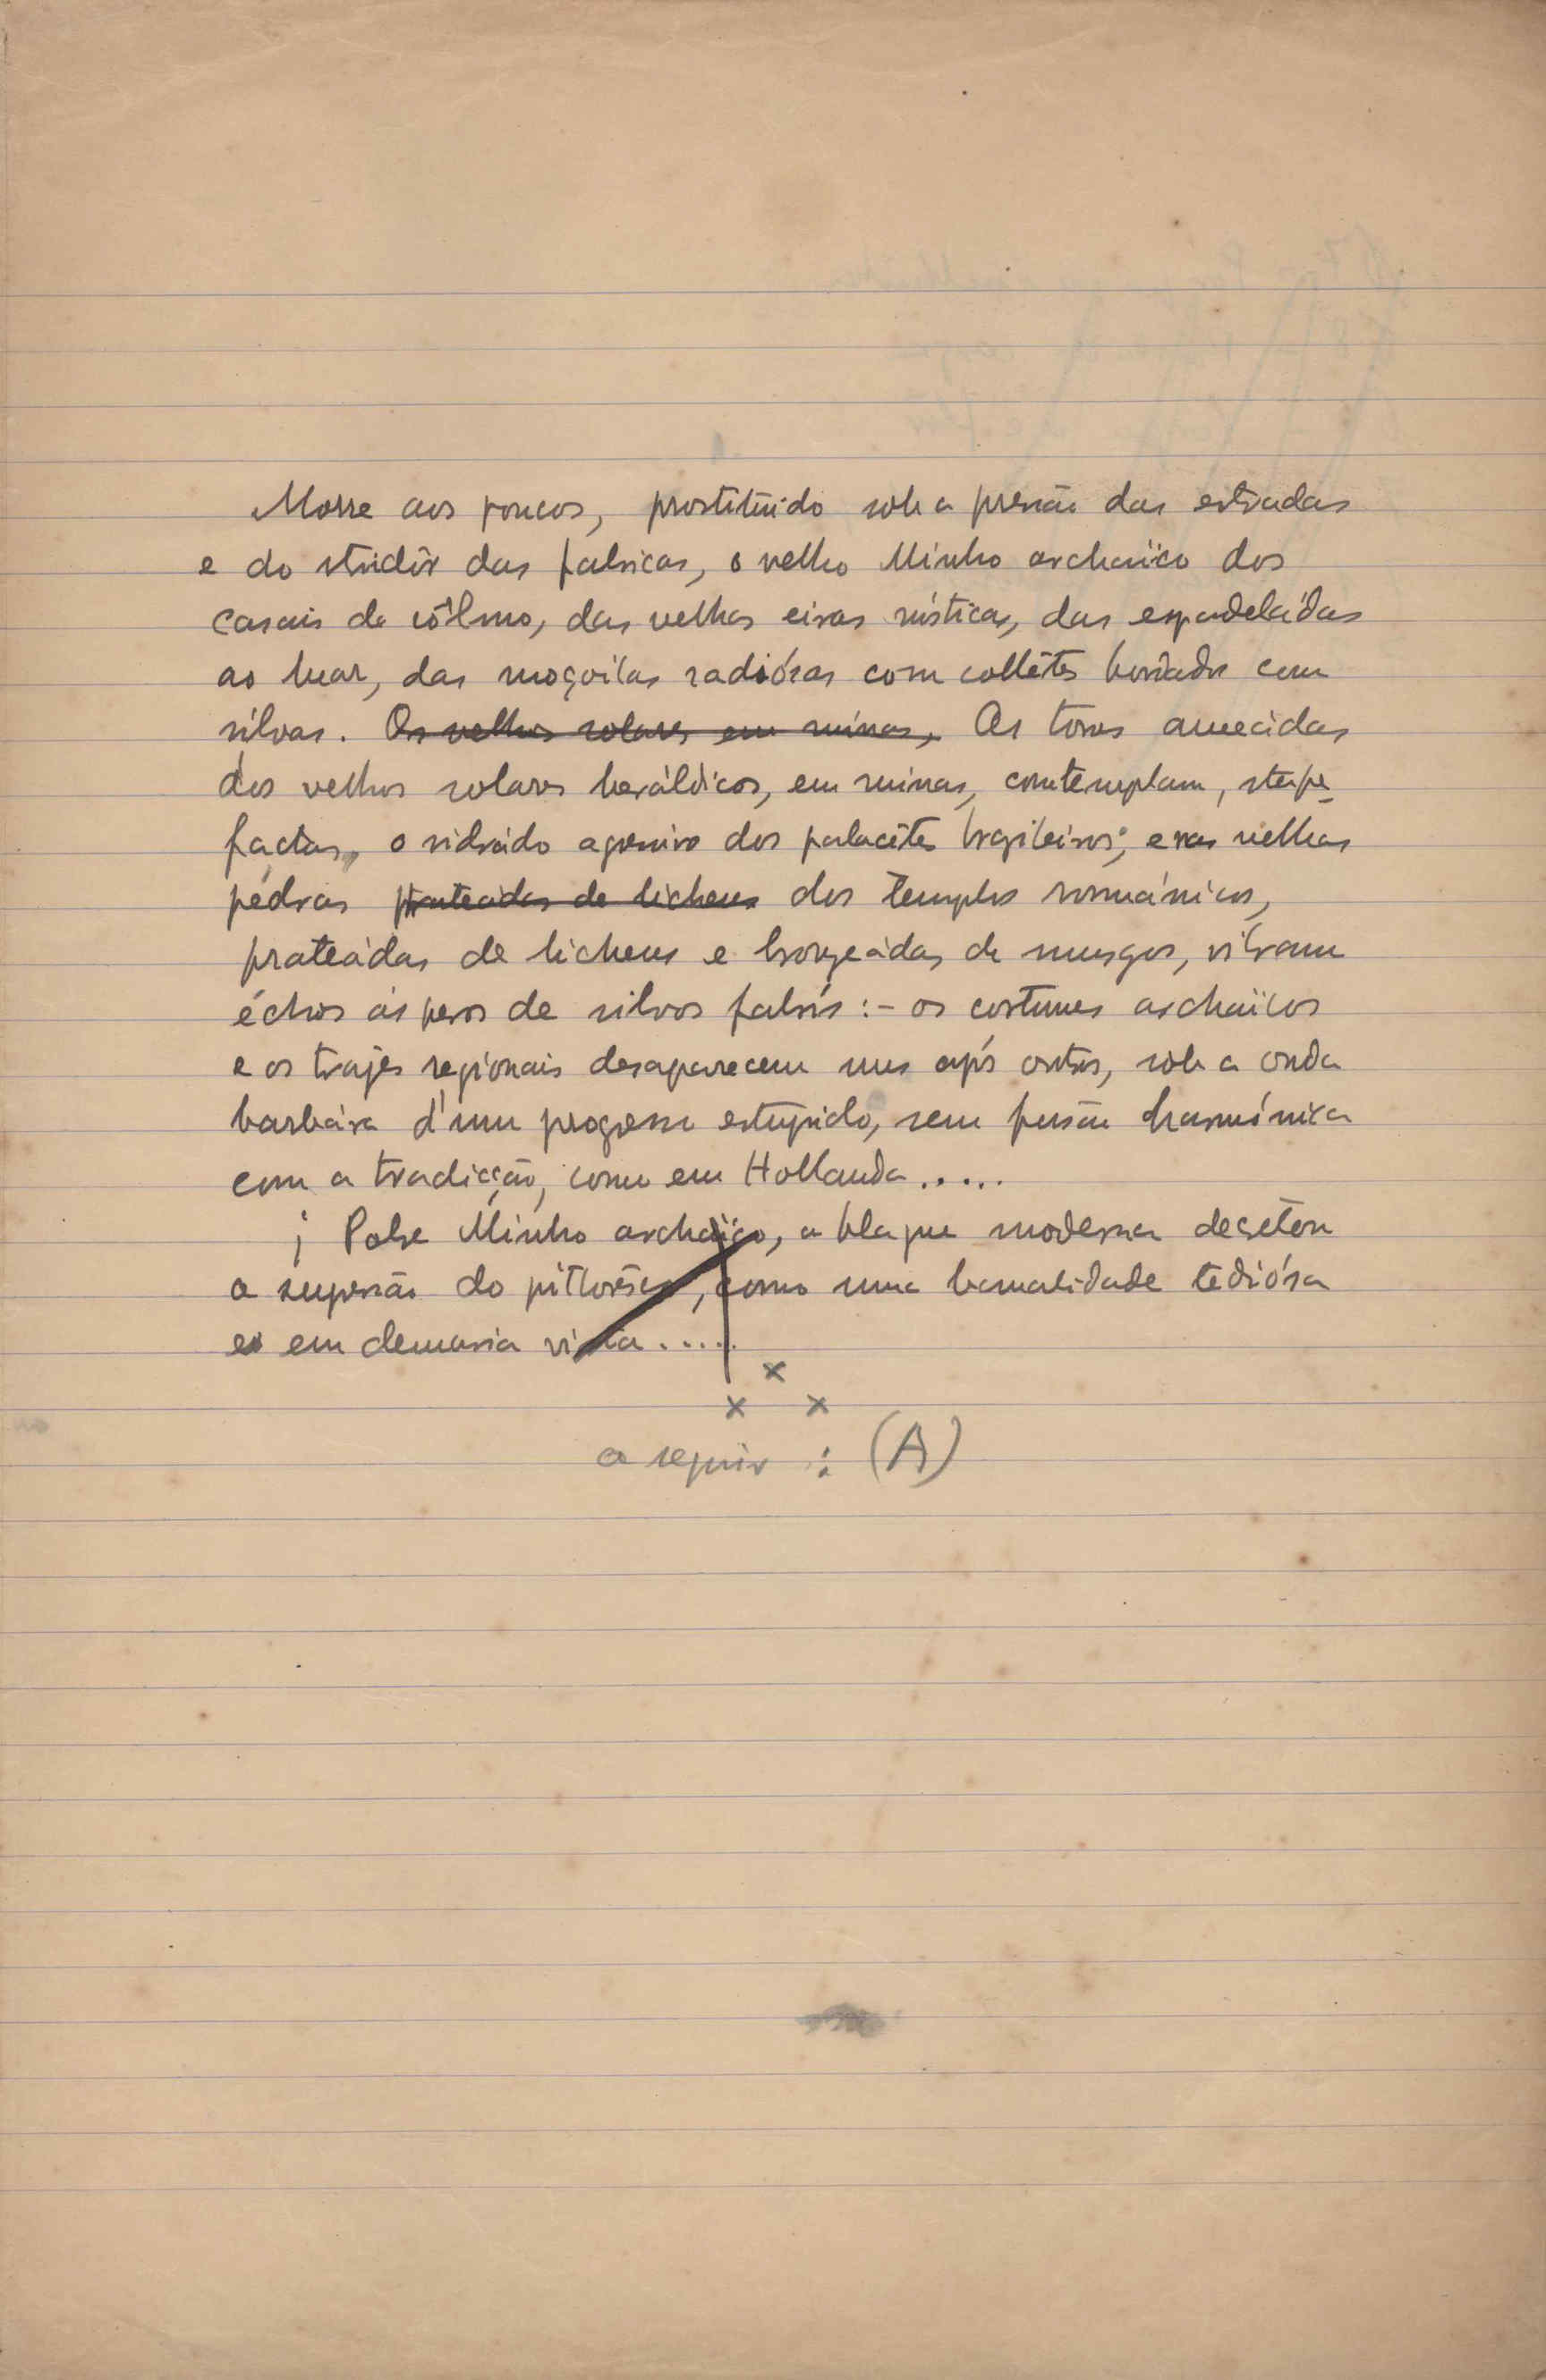 Morre aos poucos, prostituido sob a pressão das estradas
e do stridôr das fabricas, o velho Minho archaïco dos
casais de côlmo, das velhas eiras rústicas, das espadeládas
ao luar, das moçoilas radiósas com collêtes bordados com
silvas. Os velhos solares em ruinas, As torres ameiadas
dos velhos solares heráldicos, em ruinas, comtemplam, stupe-
factas, o vidrádo agressivo dos palacêtes brazileiros; e nas velhas
pédras prateadas de lichens dos templos românicos,
prateádas de lichens e bronzeádas de musgos, vibram
échos ásperos de silvos fabris :- os costumes archaïcos
e os trajes regionais desaparecem uns após outros, sob a onda
barbára d'um progresso estupido, sem fusão harmónica
com a tradicção, como em Hollanda.....
¡ Pobre Minho archaïco, a blague moderna decretou
a supressão do pittorêsco, como uma banalidade tediósa
e em demasia vista.....
x
x x
a seguir : (A)